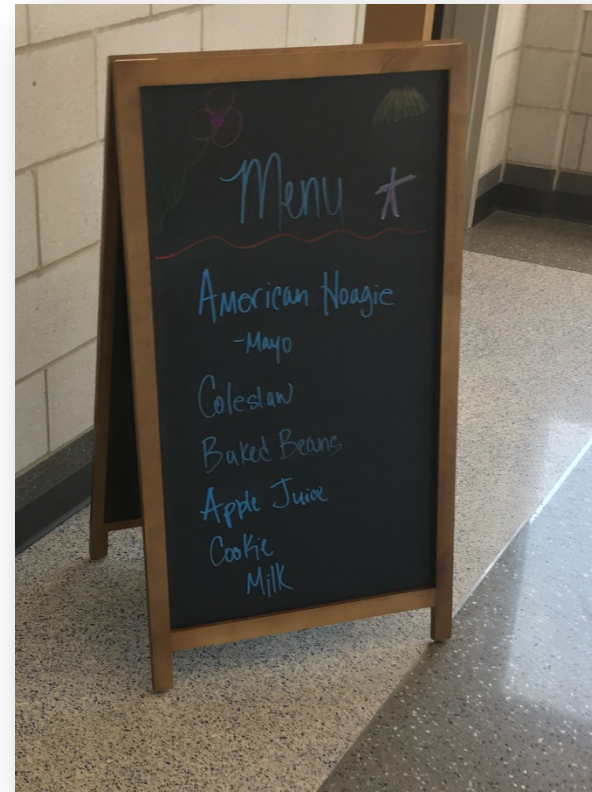 Menu
American Hoagie
-Mayo
Coleslaw
Baked Beans
Apple Juice
Cookie
Milk